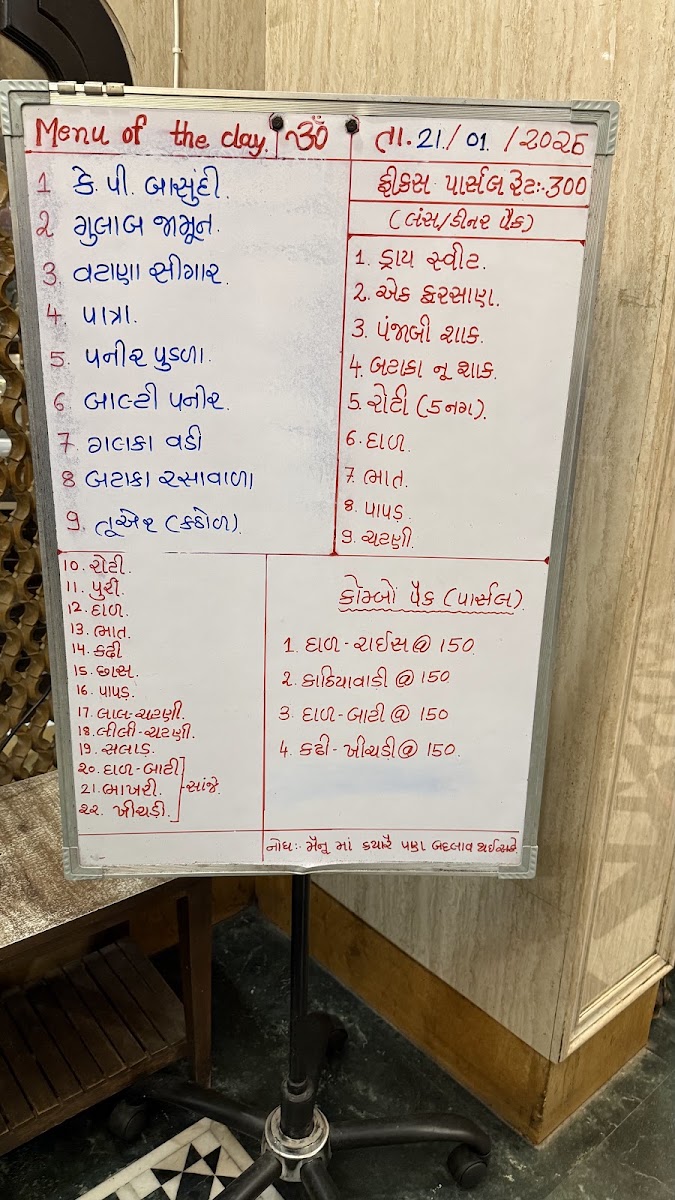 Menu of the day
ॐ
તા. 21/01/2026
1 કે. પી. બાસુંદી.
2 ગુલાબ જામૂન.
3. વટાણા સીગાર.
4. પાત્રા.
5. પનીર પુડળા.
6 બાલ્ટી પનીર.
7. ગલકા વડી
8 બટાકા રસાવાળા
9. તૂએર (કઠોળ).
ફીકસ પાર્સલ રેટઃ- 300
(લંસ/ડીનર પૈક)
1. ડ્રાય સ્વીટ.
2. એક ફરસાણ.
3. પંજાબી શાક.
4. બટાકા નૂ શાક.
5. રોટી (5 નગ).
6. દાળ.
7. ભાત.
8. પાપડ.
9. ચટણી.
10. રોટી.
11. પુરી.
12. દાળ.
13. ભાત.
14. કઢી
15. છાસ.
16. પાપડ.
17. લાલ-ચટણી.
18. લીલી-ચટણી.
19. સલાડ.
20. દાળ-બાટી
21. ભાખરી. - સાંજે.
૨૨. ખીચડી.
કોમ્બો પૈક (પાર્સલ).
1. દાળ-રાઈસ @ 150.
2. કાઠિયાવાડી @ 150
3. દાળ-બાટી @ 150
4. કઢી-ખીચડી @ 150.
નોધઃ- મૈનૂ માં કયારૈ પણ બદલાવ થઈ શકે.